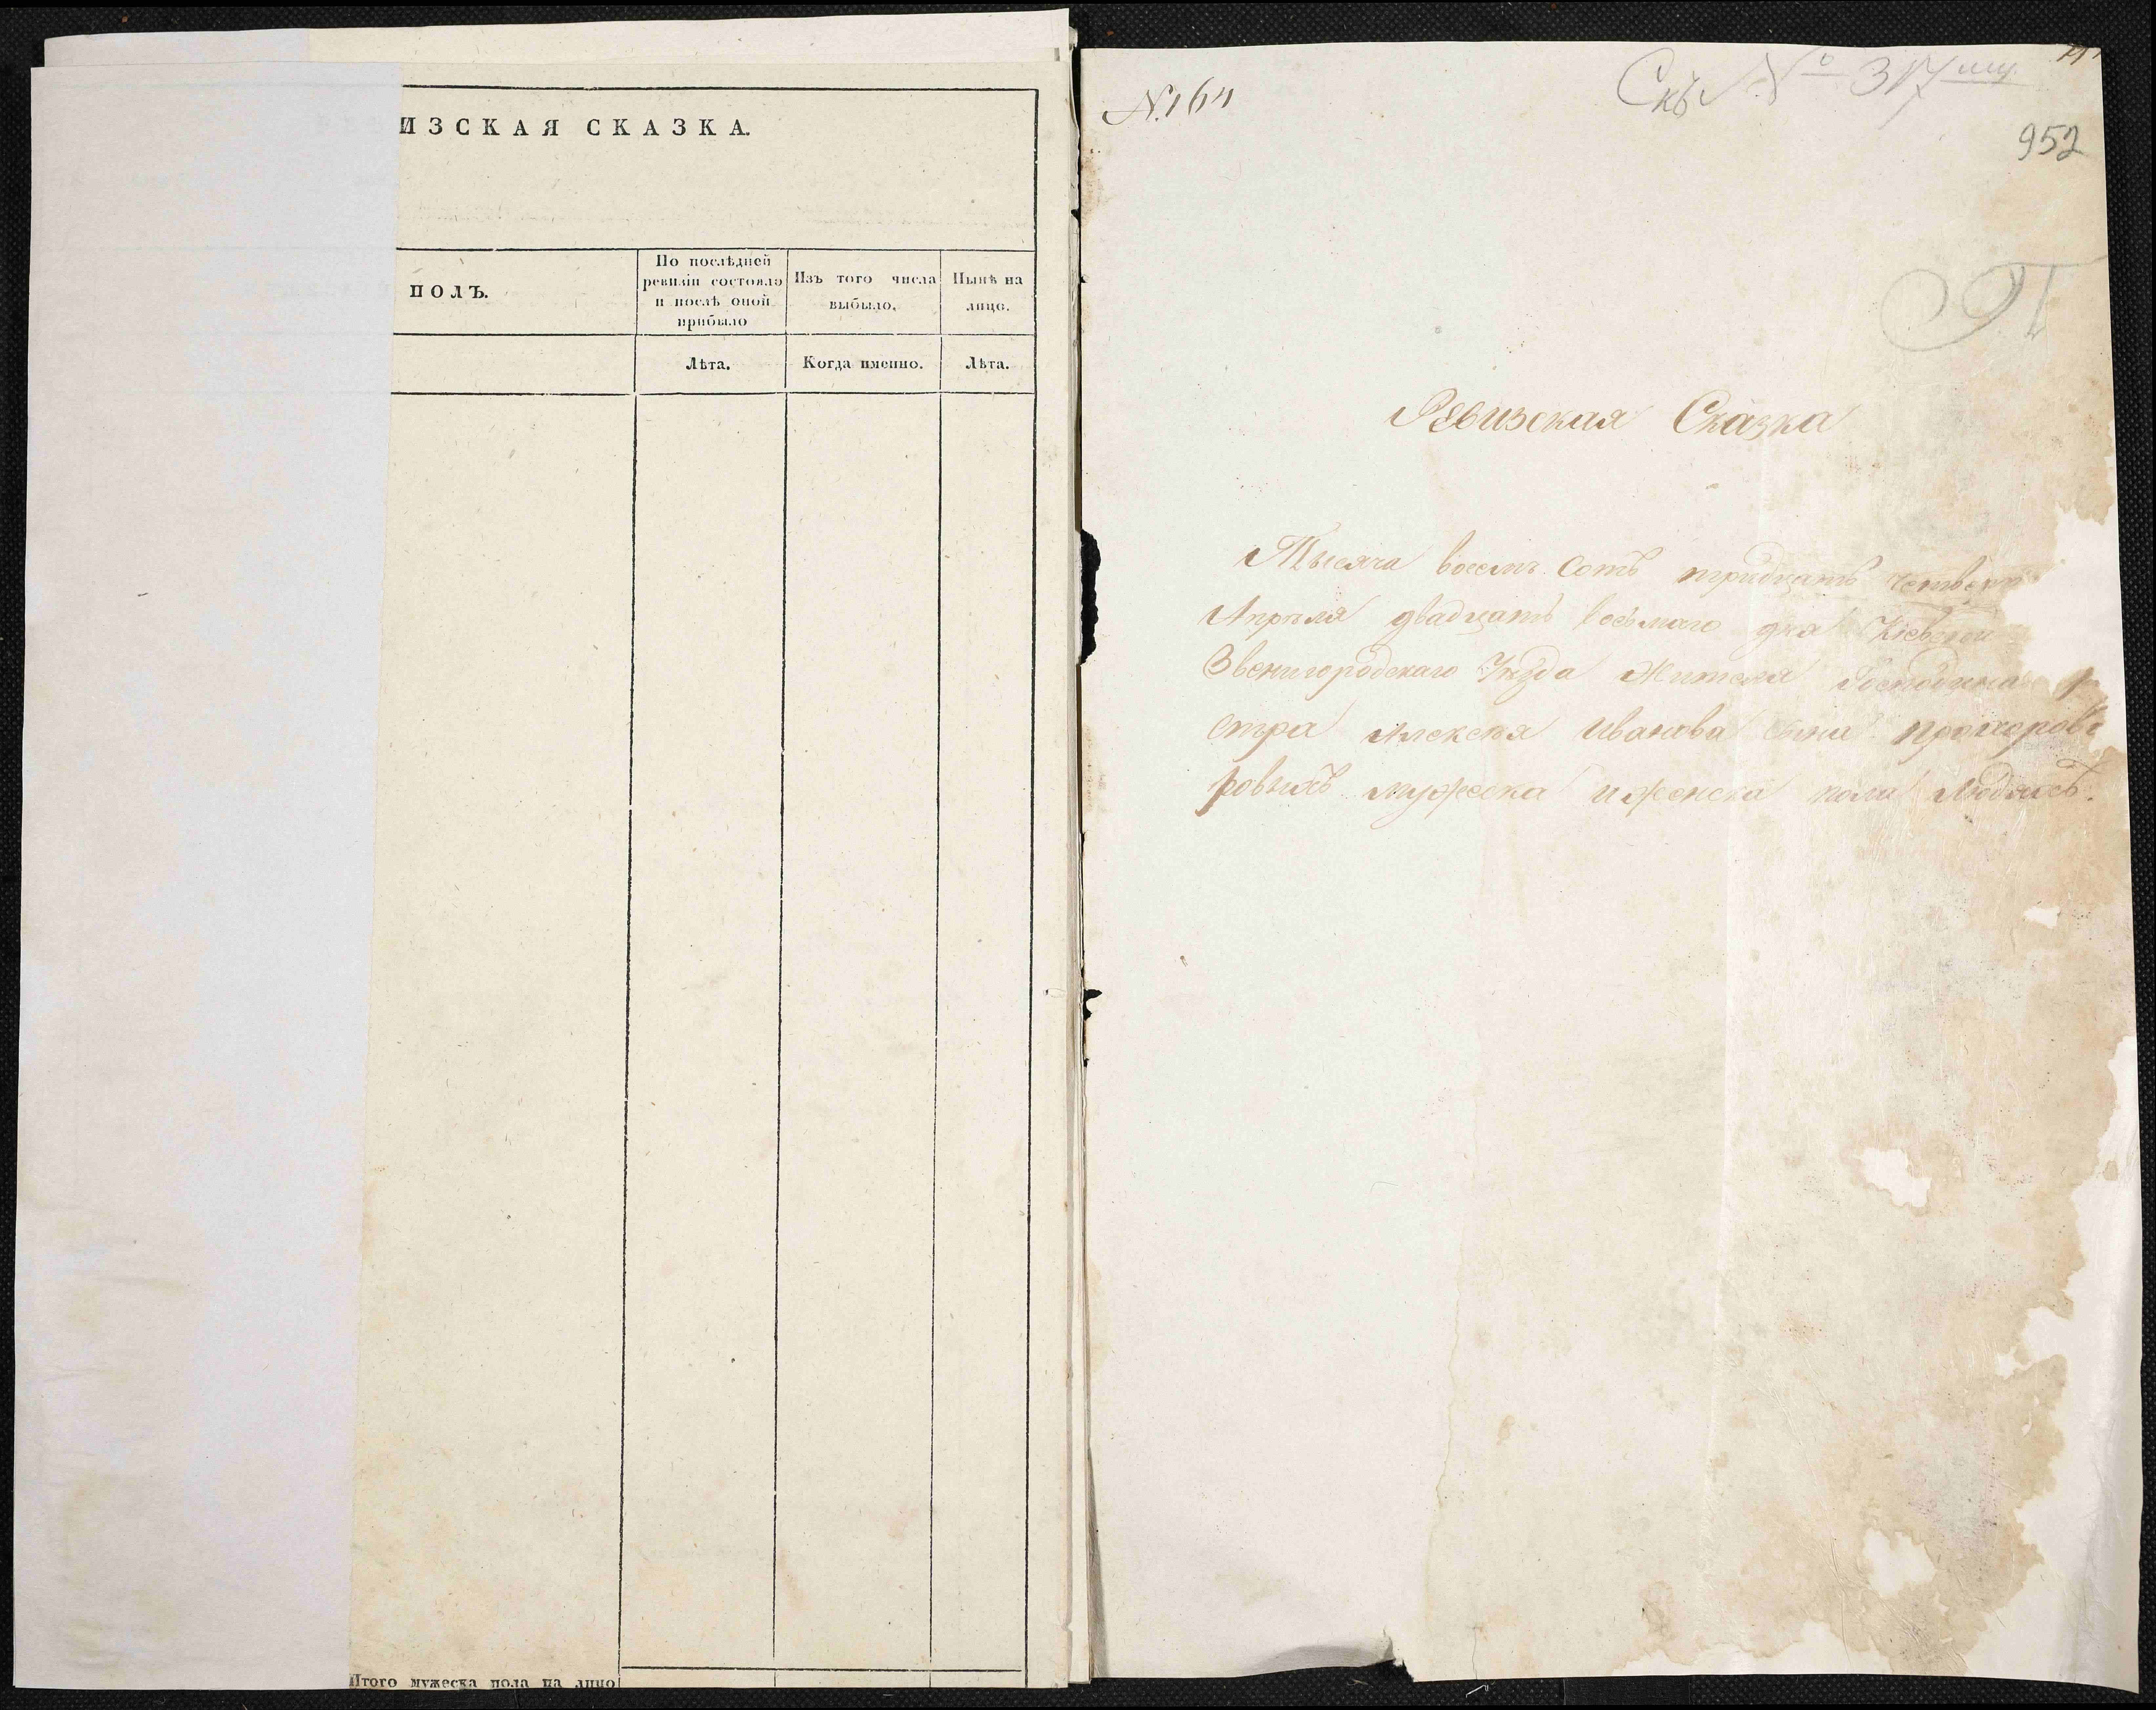 ИЗСКАЯ СКАЗКА.
ПОЛЪ.
По послѣдней
ревизіи состояло
и послѣ оной
прибыло
Изъ того числа
выбыло.
Нынѣ на
лицо.
Лѣта.
Когда именно.
Лѣта.
Итого мужеска пола на лицо
№164
952
Ревизская Сказка
Тысяча восемь Сотъ тридцать четверт
Апрѣля двадцать восьмаго дня Кіевской
Звенигородскаго Уѣзда Жителя
стра Алексѣя Иванова сына
ровыхъ мужеска и женска пола людяхъ.